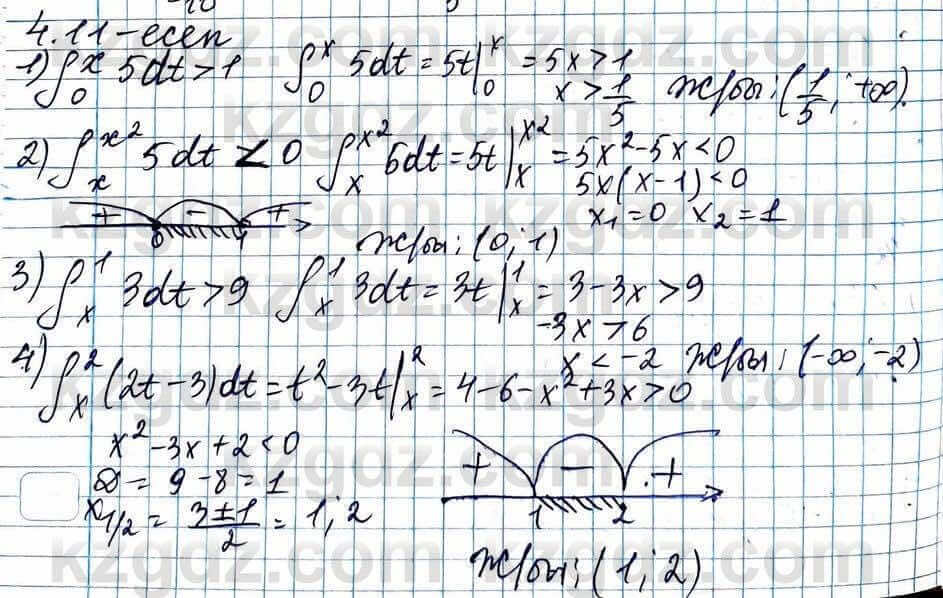 4.11-есеп
1) ∫₀ˣ 5dt > 1   ∫₀ˣ 5dt = 5t|₀ˣ = 5x > 1
x > 1/5   Ж/бы: (1/5; +∞).
2) ∫ₓ^(x²) 5dt < 0   ∫ₓ^(x²) 5dt = 5t|ₓ^(x²) = 5x² - 5x < 0
5x(x-1) < 0
x₁ = 0  x₂ = 1
+ - +
0 1
Ж/бы: (0; 1)
3) ∫ₓ¹ 3dt > 9   ∫ₓ¹ 3dt = 3t|ₓ¹ = 3 - 3x > 9
-3x > 6
x < -2  Ж/бы: (-∞; -2)
4) ∫ₓ² (2t - 3)dt = t² - 3t|ₓ² = 4 - 6 - x² + 3x > 0
x² - 3x + 2 < 0
D = 9 - 8 = 1
x₁/₂ = (3±1)/2 = 1; 2
+ - +
1 2
Ж/бы: (1; 2)
kzgdz.com